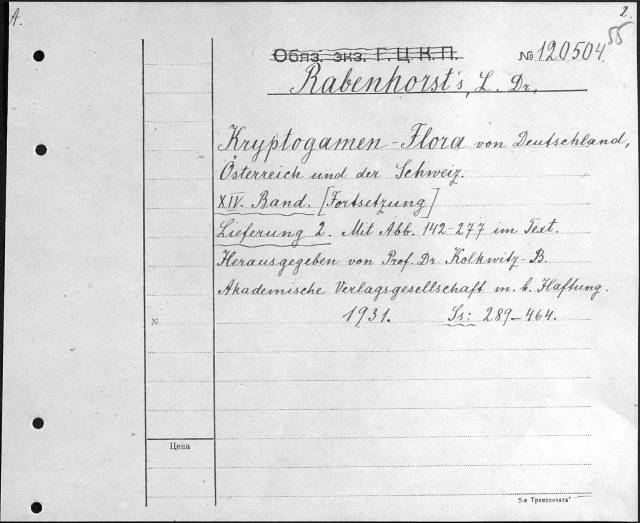 A.
2.
55
Обяз. экз. Г.Ц.К.П.
№ 120504
Rabenhorst's, L. Dr.
Kryptogamen-Flora von Deutschland,
Österreich und der Schweiz.
XIV. Band. [Fortsetzung]
Lieferung 2. Mit Abb. 142-277 im Text.
Herausgegeben von Prof. Dr. Kolkwitz-B.
Akademische Verlagsgesellschaft m. b. Haftung.
1931. Ss: 289-464.
N.
Цена
5-я Транспечать"